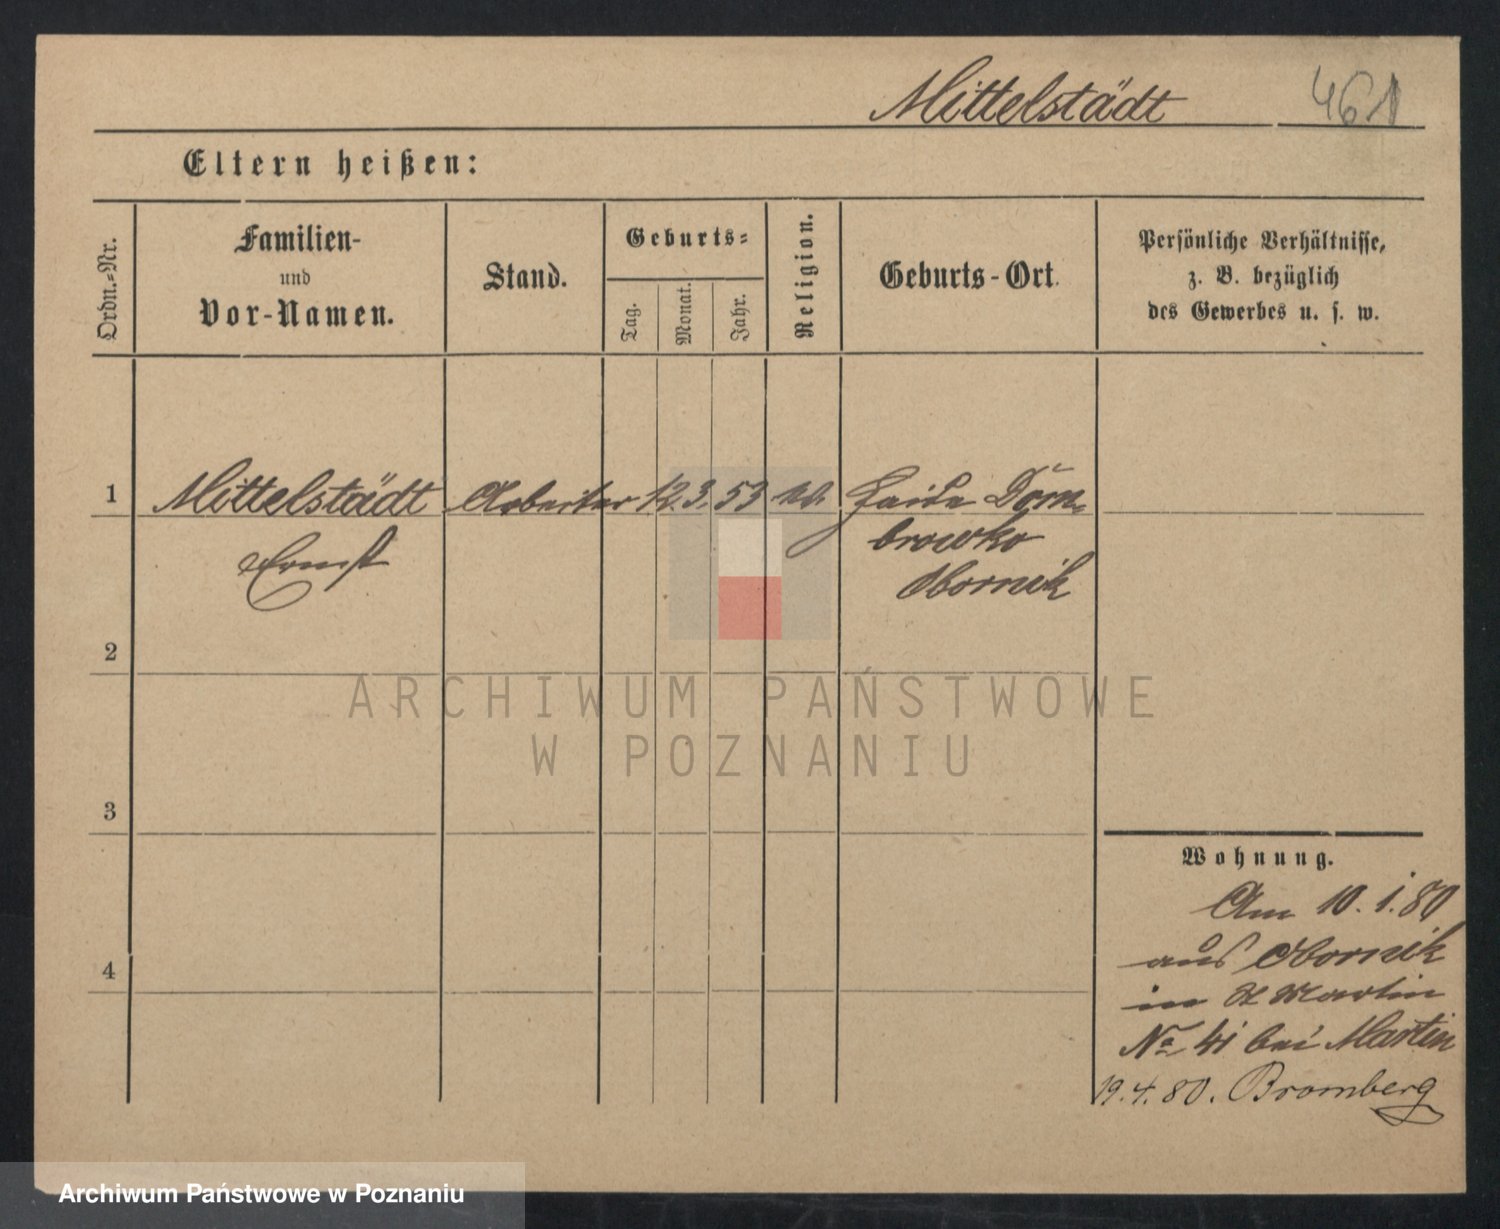 Mittelstädt 461
Eltern heißen:
Ordn.-Nr.
Familien-
und
Vor-Namen.
Stand.
Geburts-
Tag.
Monat.
Jahr.
Religion.
Geburts-Ort.
Persönliche Verhältnisse,
z. B. bezüglich
des Gewerbes u. s. w.
1 Mittelstädt Arbeiter 12. 3. 53 Haide Dom-
Ernst browko
Obornik
2
ARCHIWUM PAŃSTWOWE
W POZNANIU
3
Wohnung.
Am 10. 1. 80
aus Obornik
in St Martin
4
No 41 bei Martin
19. 4. 80. Bromberg
Archiwum Państwowe w Poznaniu